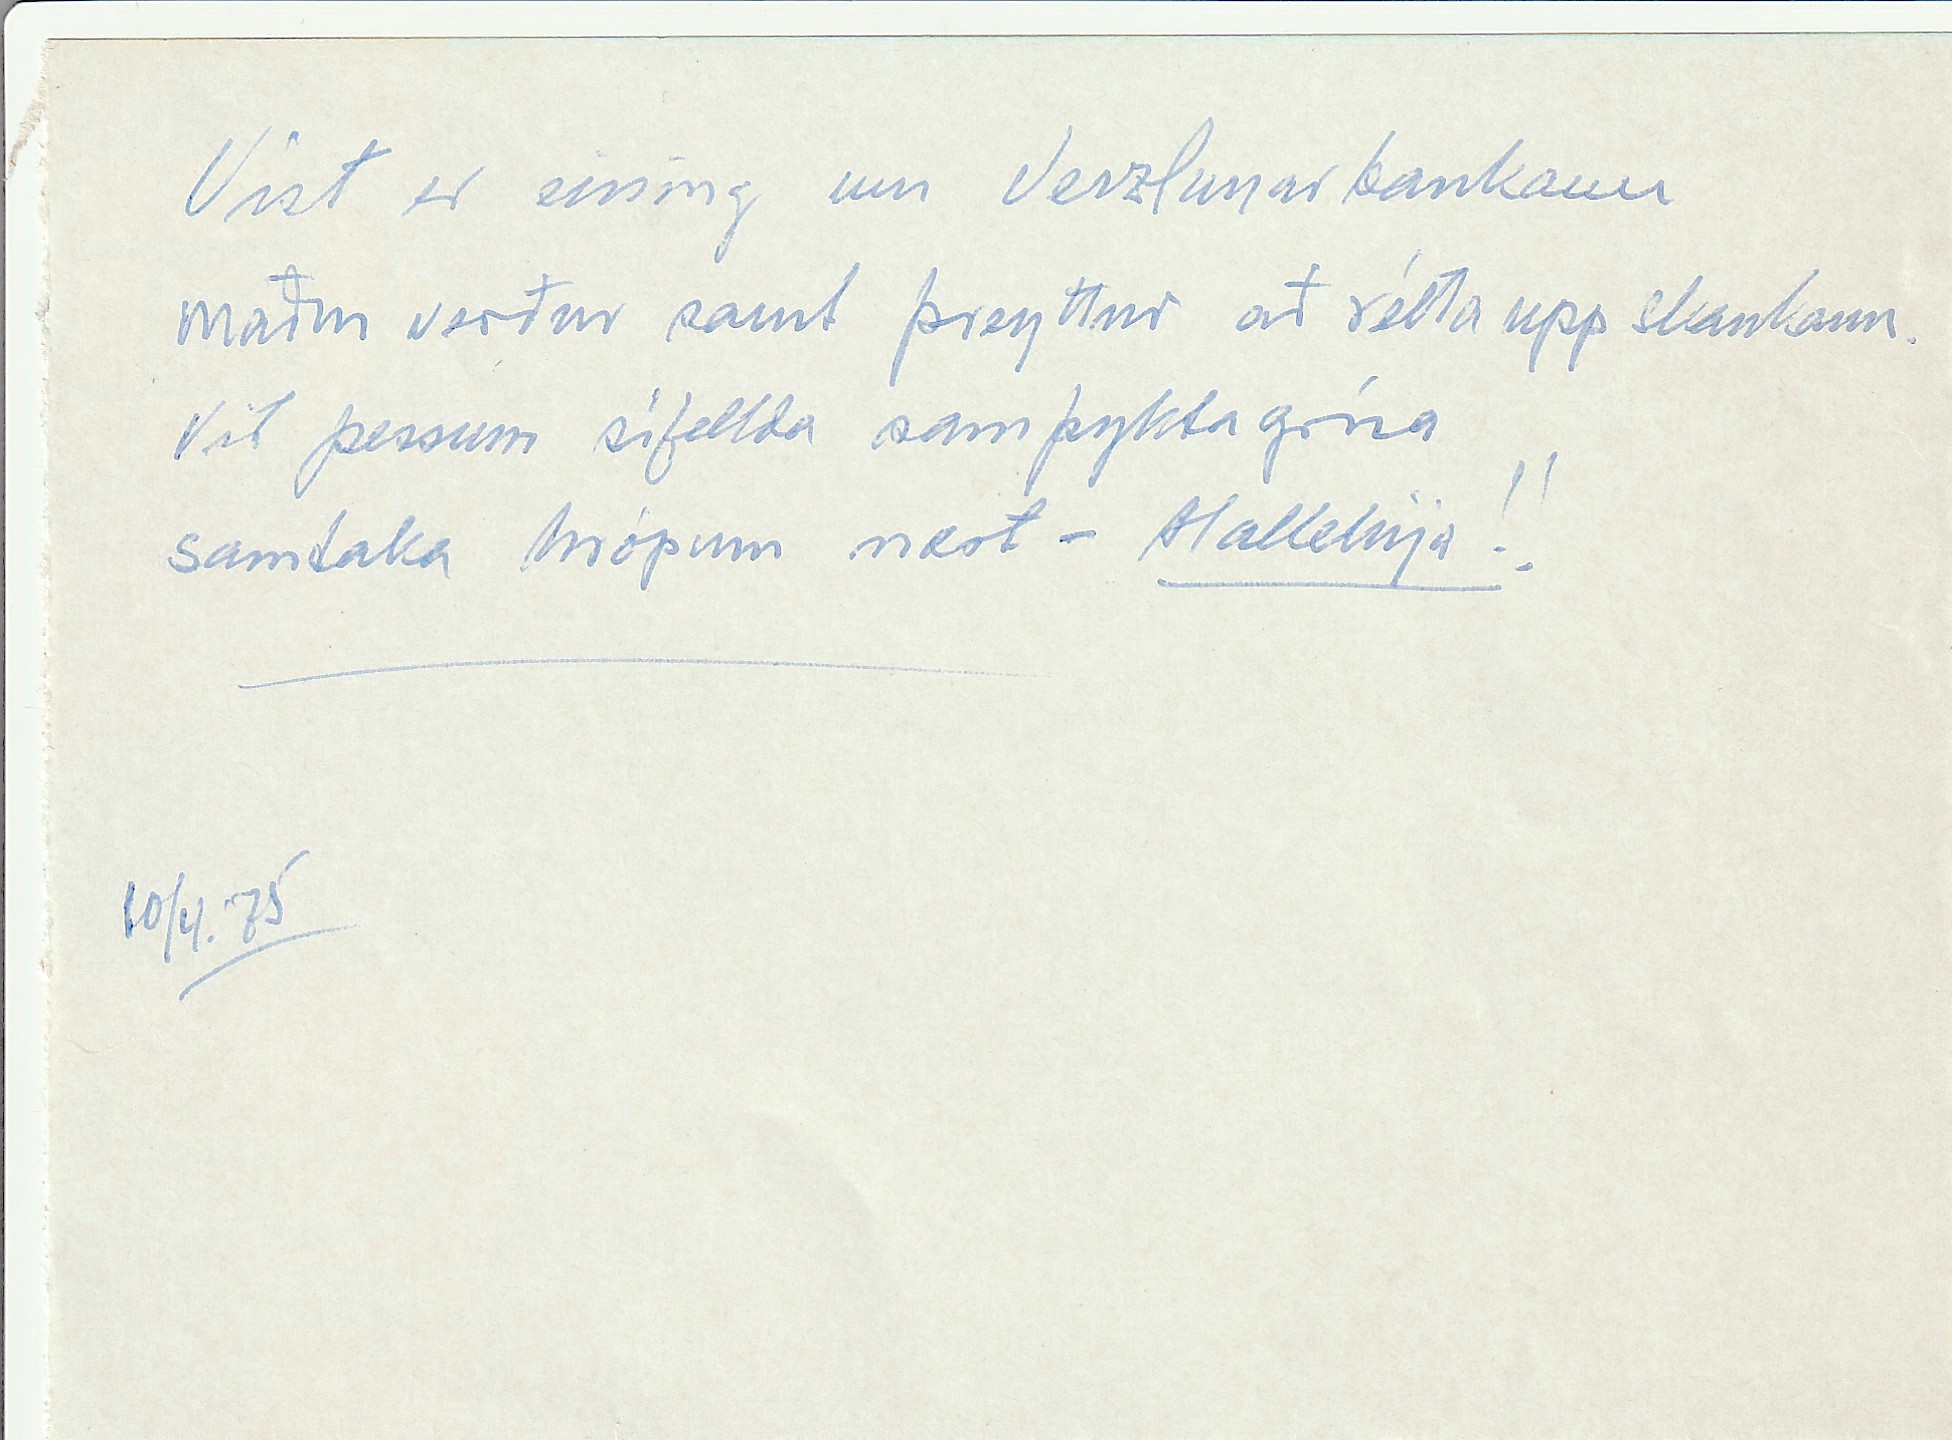 Víst er eining um Verzlunarbankann
maður verður samt þreyttur að rétta upp skankann.
Við þessum sífellda samþykktagría
samtaka hrópum næst - Hallelúja!!
10/4. '75